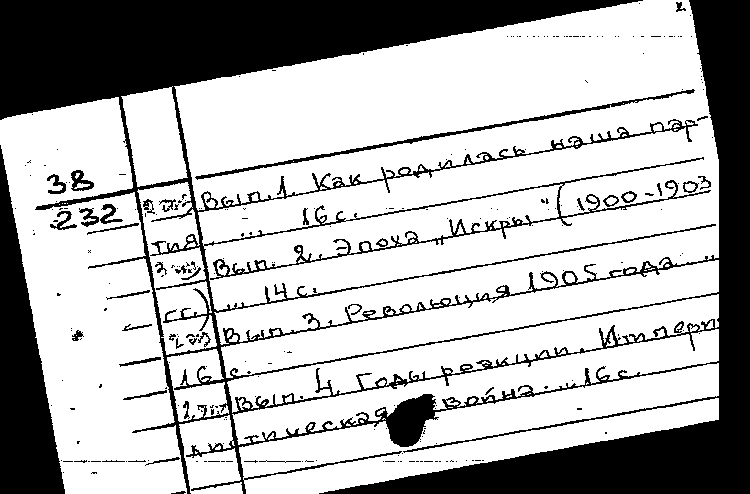 38
232
2 экз Вып. 1. Как родилась наша пар-
тия ... 16 с.
3 экз Вып. 2. Эпоха „Искры“ (1900-1903
гг.) ... 14 с.
2 экз Вып. 3. Революция 1905 года ..
16 с.
2 экз Вып. 4. Годы реакции. Импери
листическая война ... 16 с.